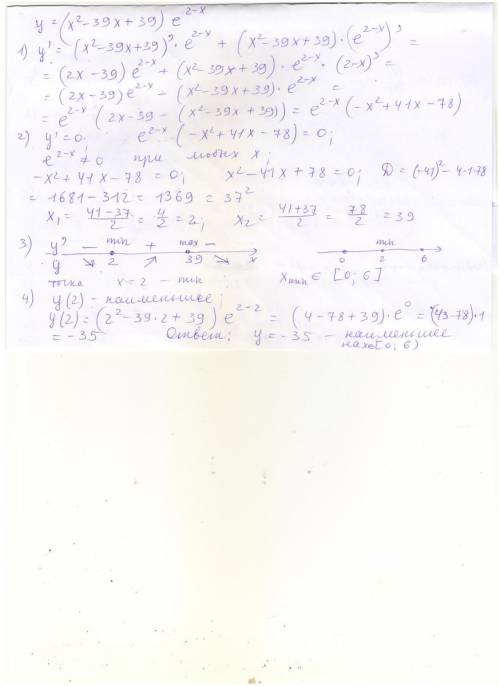 y = (x²-39x+39) e^(2-x)
1) y' = (x²-39x+39)' · e^(2-x) + (x²-39x+39) · (e^(2-x))' =
= (2x-39) e^(2-x) + (x²-39x+39) · e^(2-x) · (2-x)' =
= (2x-39) e^(2-x) - (x²-39x+39) · e^(2-x) =
= e^(2-x) (2x-39 - (x²-39x+39)) = e^(2-x) (-x²+41x-78)
2) y'=0; e^(2-x) (-x²+41x-78) = 0;
e^(2-x) ≠ 0 при любых x;
-x²+41x-78 = 0; x²-41x+78 = 0; D = (-41)² - 4·1·78
= 1681-312 = 1369 = 37²
x₁ = (41-37)/2 = 4/2 = 2; x₂ = (41+37)/2 = 78/2 = 39
3) y' - min + max -
y 2 39 x
0 min 2 6
точка x=2 - min x min ∈ [0; 6]
4) y(2) - наименьшее;
y(2) = (2²-39·2+39) e^(2-2) = (4-78+39) · e⁰ = (43-78)·1
= -35 Ответ: y = -35 - наименьшее
на x∈[0; 6]